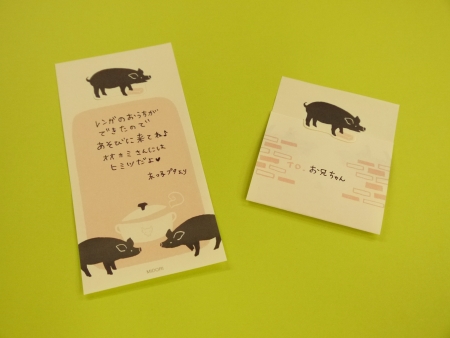 レンガのおうちが
できたので
あそびに来てね♪
オオカミさんにも
ヒミツだよ♥
末っ子ブタより
TO. お兄ちゃん